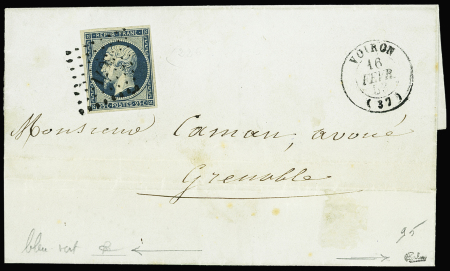 REPUB. FRANC.
25 POSTES 25
VOIRON
16
FEVR.
(37)
Monsieur Caman, avoué
Grenoble
bleu-vert
95